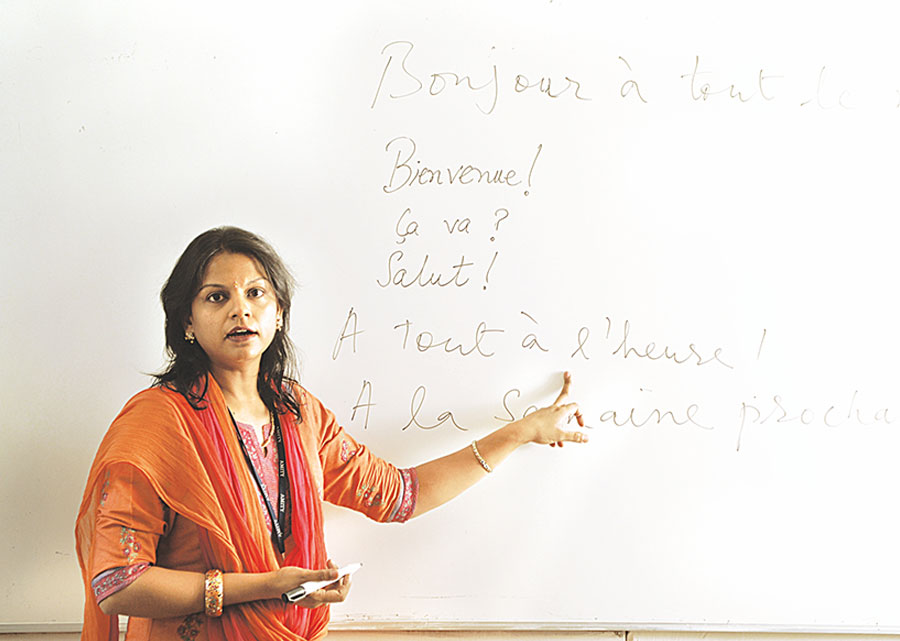 Bonjour à tout le
Bienvenue!
Ça va ?
Salut!
A tout à l'heure !
A la semaine procha
AMITY